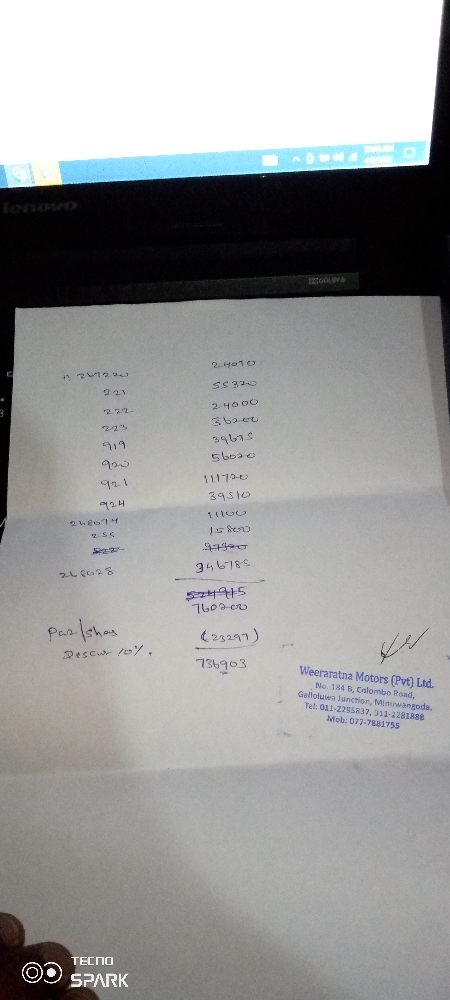 lenovo
267220 24090
221 55320
222 24000
223 36200
919 39675
920 56020
921 111720
924 39510
268074 11100
255 15800
522 97320
268028 346785
524915
760200
(23297)
Descun 10%.
736903
Weeraratna Motors (Pvt) Ltd.
No. 184 B, Colombo Road,
Galloluwa Junction, Minuwangoda.
Tel: 011-2295837, 011-2281888
Mob: 077-7881755
TECNO
SPARK